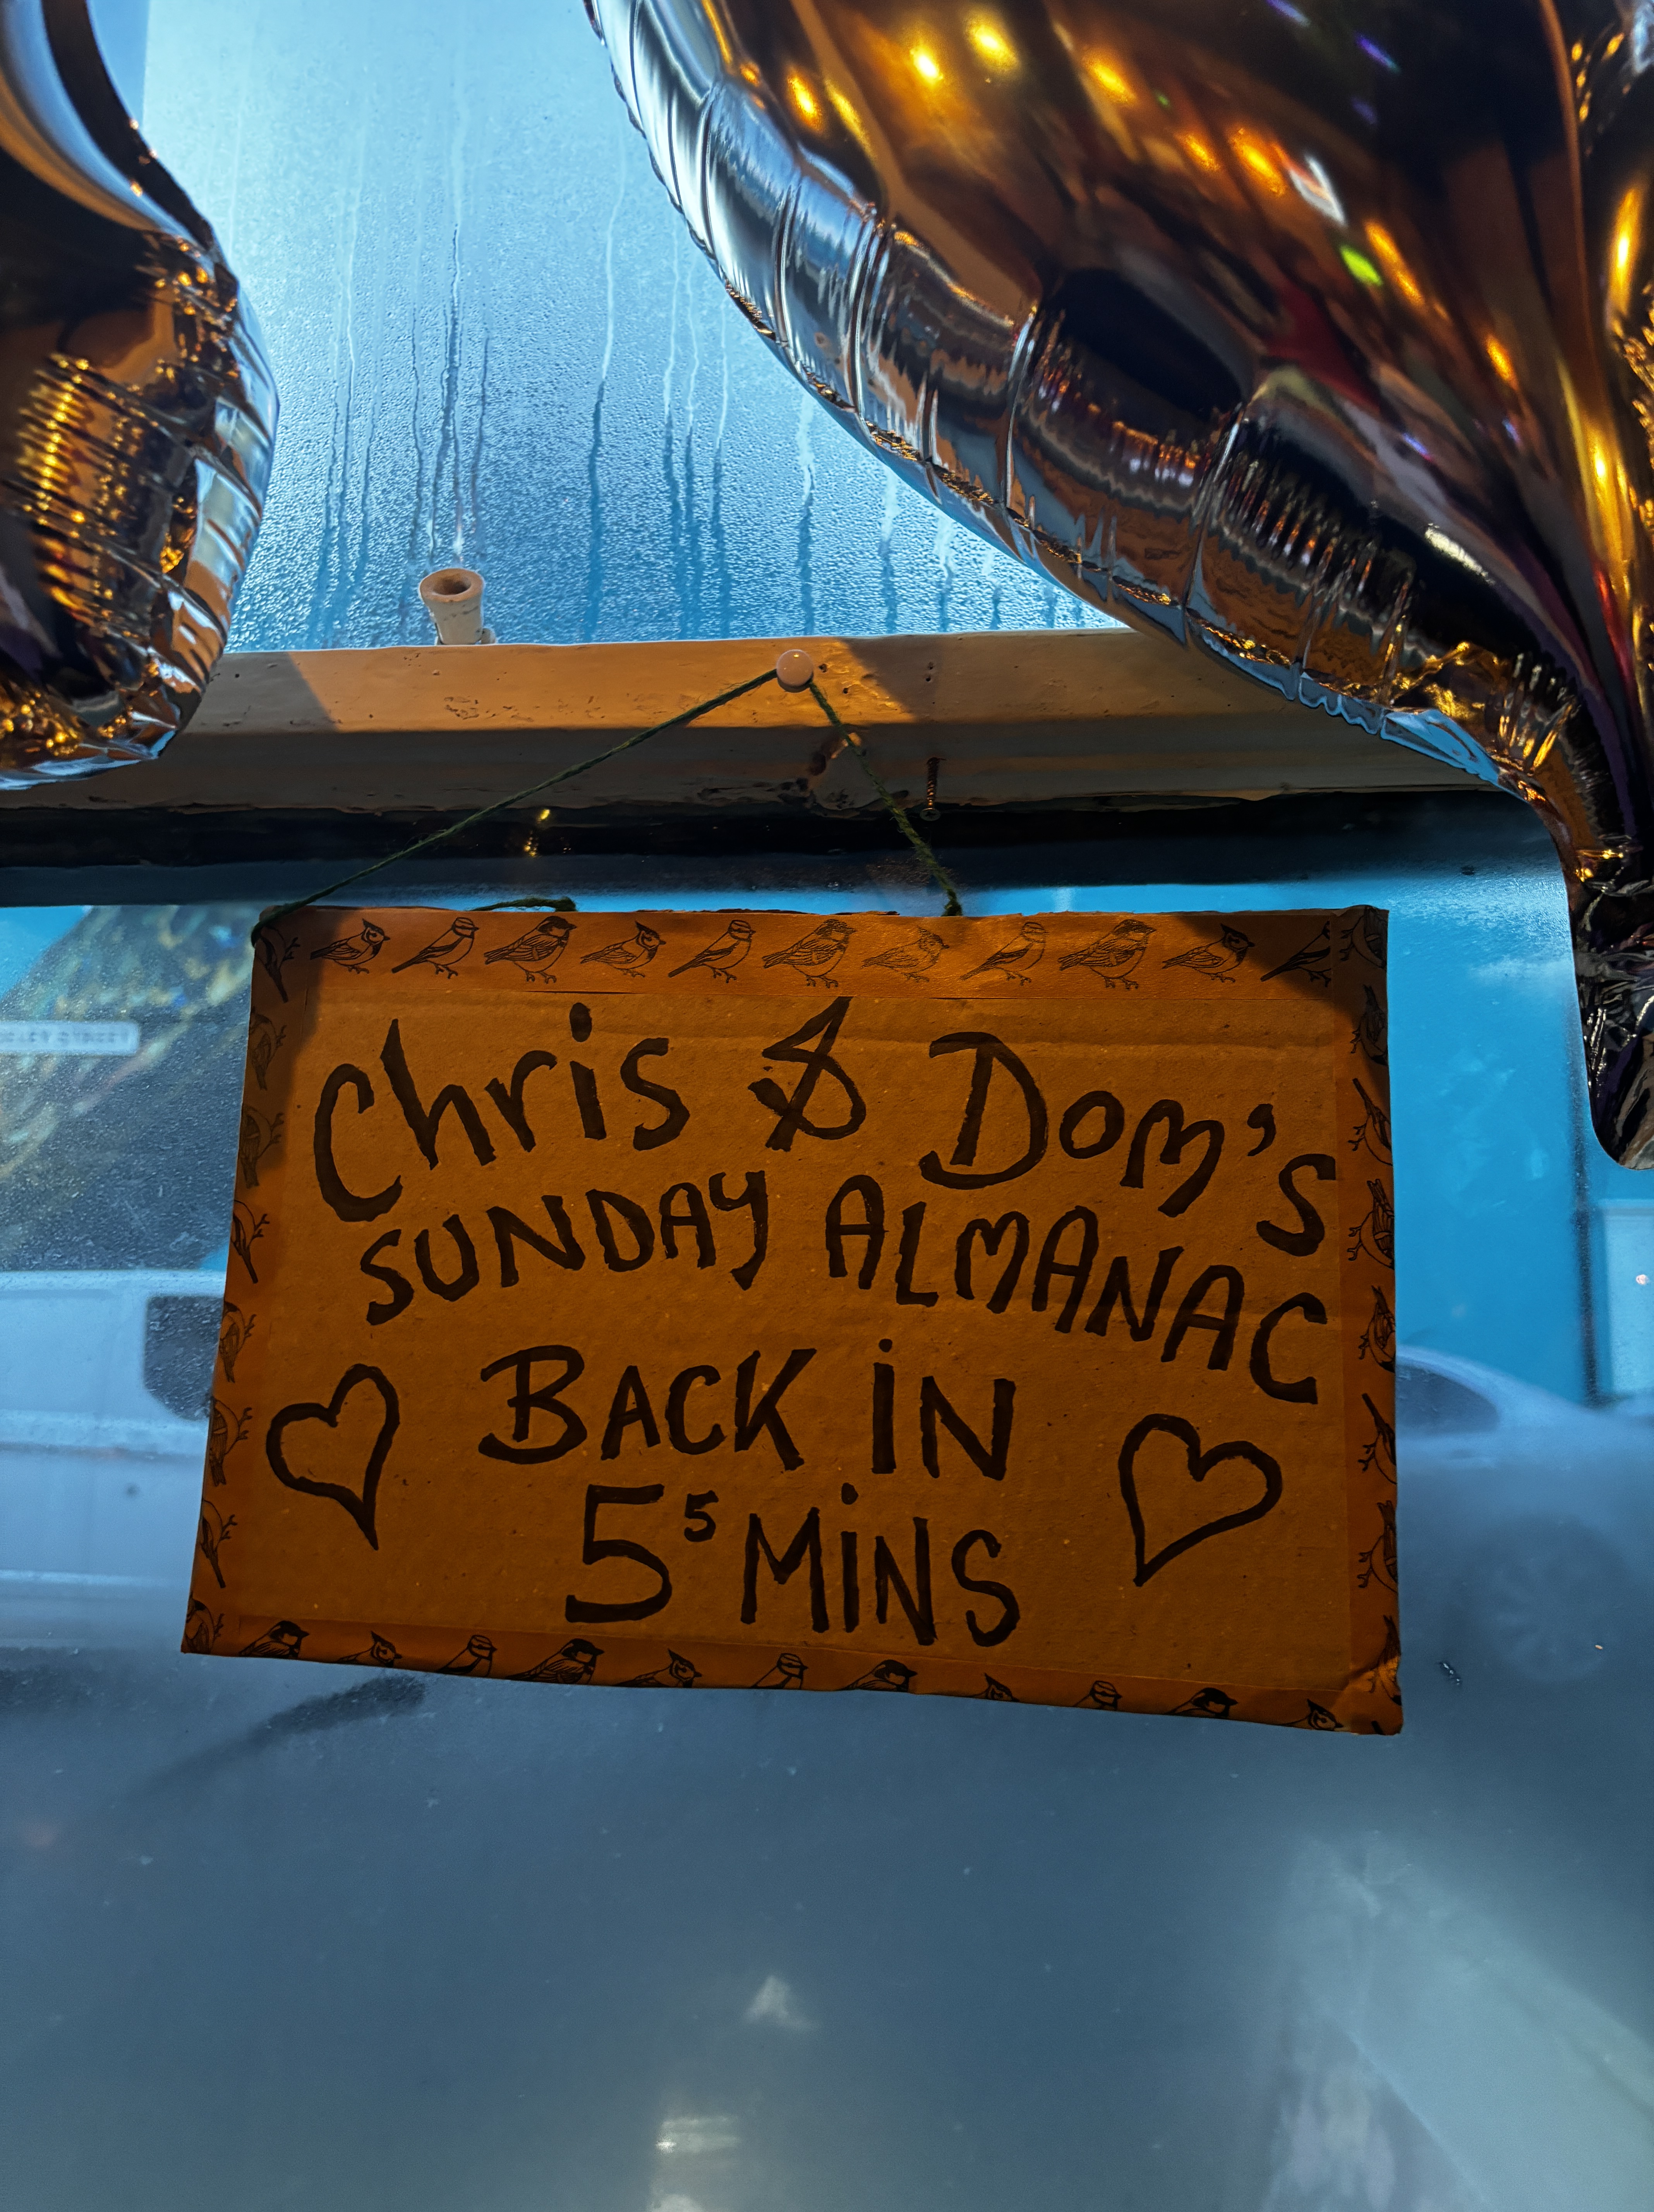 Chris & Dom's
SUNDAY ALMANAC
BACK iN
5⁵ MiNS